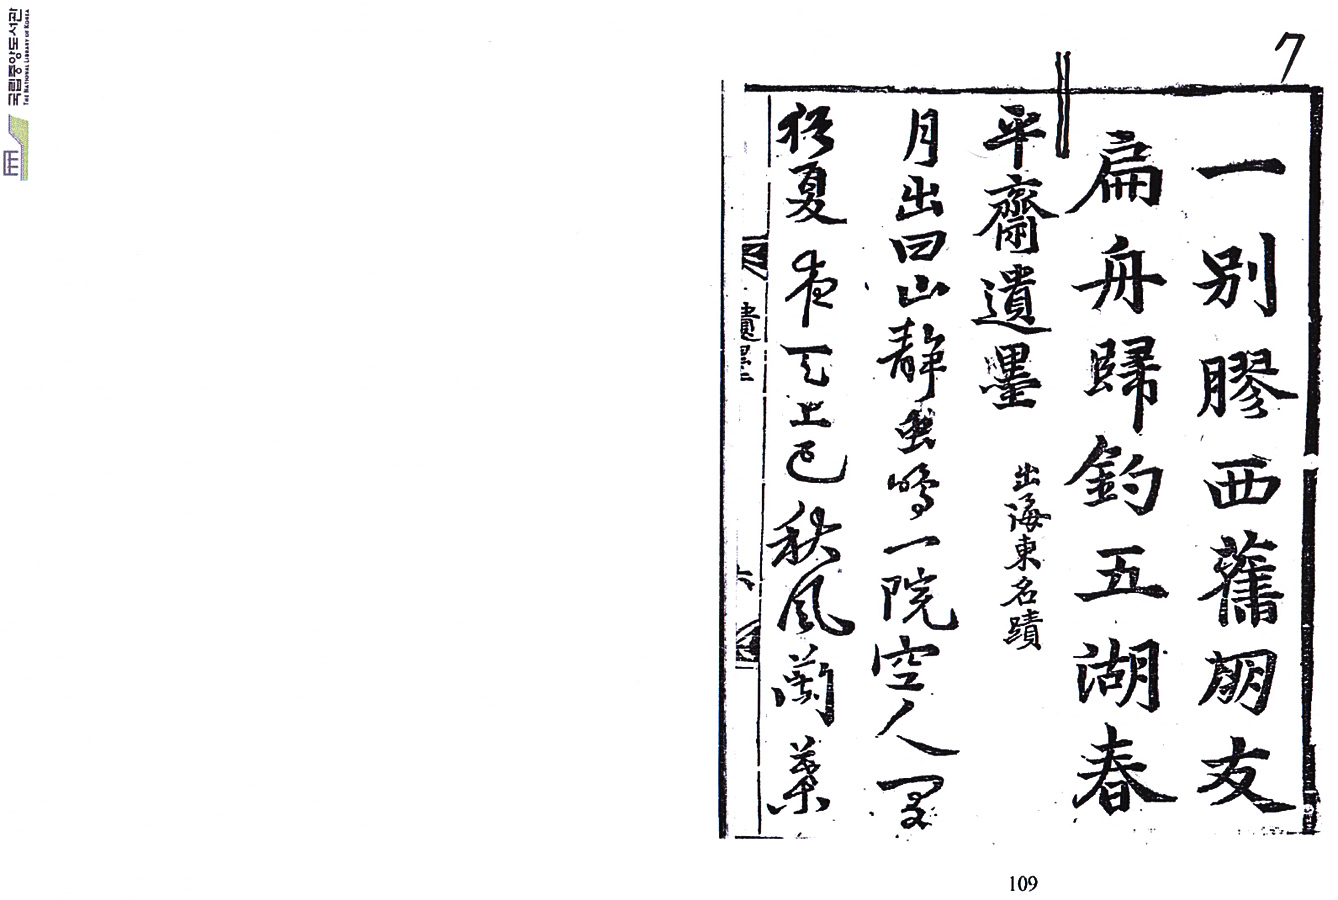 국립중앙도서관
THE NATIONAL LIBRARY OF KOREA
7
一別膠西舊朋友
扁舟歸釣五湖春
平齋遺墨 出海東名蹟
月出四山靜蛩鳴一院空人間
猶夏夜天上已秋風蘭葉
遺墨 六
109